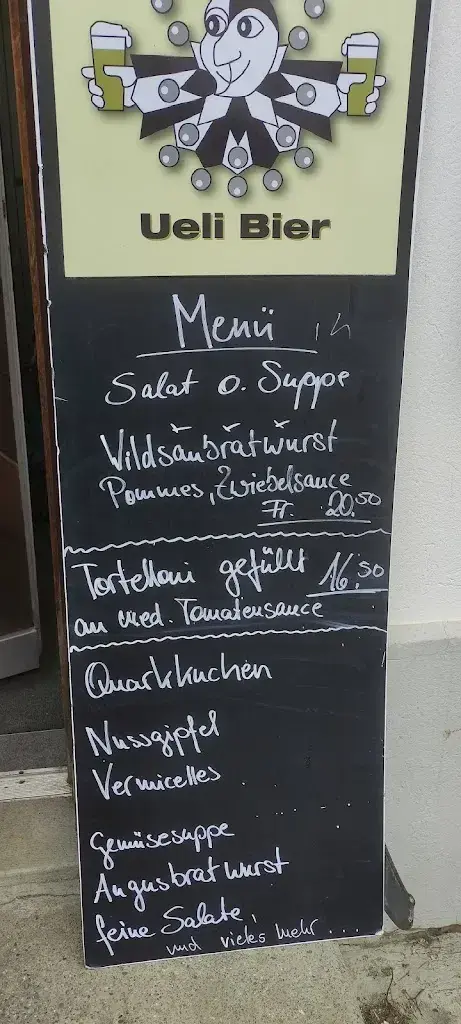 Ueli Bier
Menü
Salat o. Suppe
Wildsaubratwurst
Pommes, Zwiebelsauce
Fr. 20.50
Tortelloni gefüllt 16.50
an med. Tomatensauce
Quarkkuchen
Nussgipfel
Vermicelles
Gemüsesuppe
Angusbratwurst
feine Salate,
und vieles mehr...